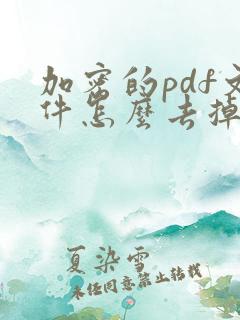 加密的pdf文
件怎麼去掉
夏染雪
未经同意禁止转载